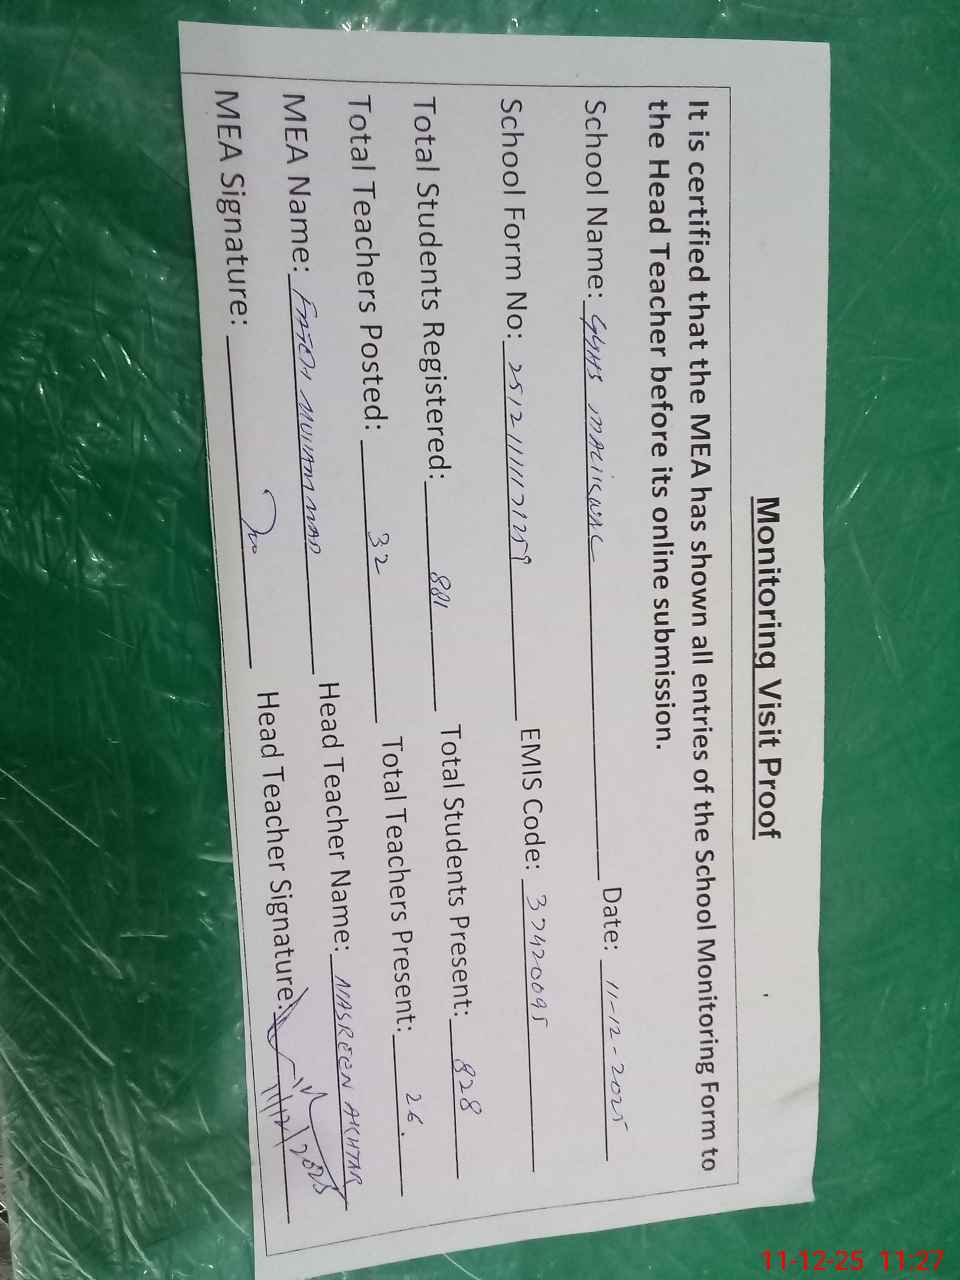 Monitoring Visit Proof
It is certified that the MEA has shown all entries of the School Monitoring Form to
the Head Teacher before its online submission.
School Name: GGHS MALIKWAL Date: 11-12-2025
School Form No: EMIS Code: 37420095
Total Students Registered: 881 Total Students Present: 828
Total Teachers Posted: 32 Total Teachers Present: 26.
MEA Name: FATEH MUHAMMAD Head Teacher Name: NASREEN AKHTAR
MEA Signature: Head Teacher Signature: 11/12/2025
11-12-25 11:27